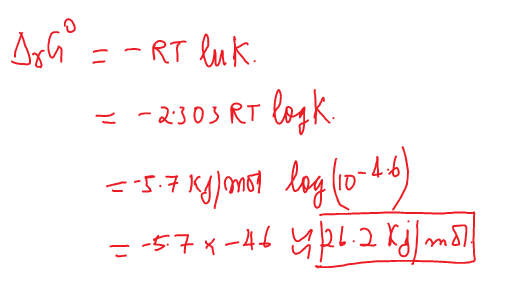 ΔrG⁰ = - RT ln K.
= - 2.303 RT log K.
= -5.7 KJ/mol log (10^-4.6)
= -5.7 x -4.6 ≈ 26.2 KJ/mol